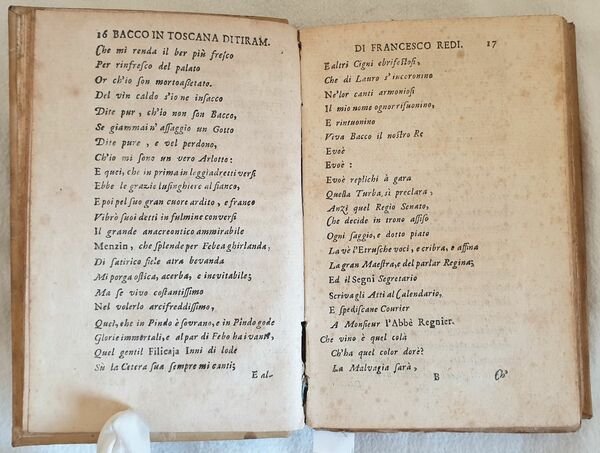 16 BACCO IN TOSCANA DITIRAM.
Che mi renda il ber più fresco
Per rinfresco del palato
Or ch'io son mortoassetato.
Del vin caldo s'io ne insacco
Dite pur, ch'io non son Bacco,
Se giammai n'assaggio un Gotto
Dite pure, e vel perdono,
Ch'io mi sono un vero Arlotto:
E quei, che in prima in leggiadretti versi
Ebbe le grazie lusinghiere al fianco,
E poi pel suo gran cuore ardito, e franco
Vibrò suoi detti in fulmine conversi
Il grande anacreontico ammirabile
Menzin, che splende per Febea ghirlanda,
Di satirico fiele atra bevanda
Mi porga ostica, acerba, e inevitabile;
Ma se vivo costantissimo
Nel volerlo arcifreddissimo,
Quei, che in Pindo è sovrano, e in Pindo gode
Glorie immortali, e al par di Febo ha i vanti,
Quel gentil Filicaja Inni di lode
Sù la Cetera sua sempre mi canti;
E al-
DI FRANCESCO REDI. 17
E altri Cigni ebrifestosi,
Che di Lauro s'incoronino
Ne'lor canti armoniosi
Il mio nome ognor risuonino,
E rintuonino
Viva Bacco il nostro Re
Evoè
Evoè:
Evoè replichi à gara
Quella Turba, sì preclara,
Anzi quel Regio Senato,
Che decide in trono assiso
Ogni saggio, e dotto piato
Là v'è l'Etrusche voci, e cribra, e affina
La gran Maestra, e del parlar Regina;
Ed il Segni Segretario
Scriva gli Atti al Calendario,
E spediscane Courier
A Monsieur l'Abbè Regnier.
Che vino è quel colà
Ch'ha quel color dorè?
La Malvagìa sarà,
B
Ch'